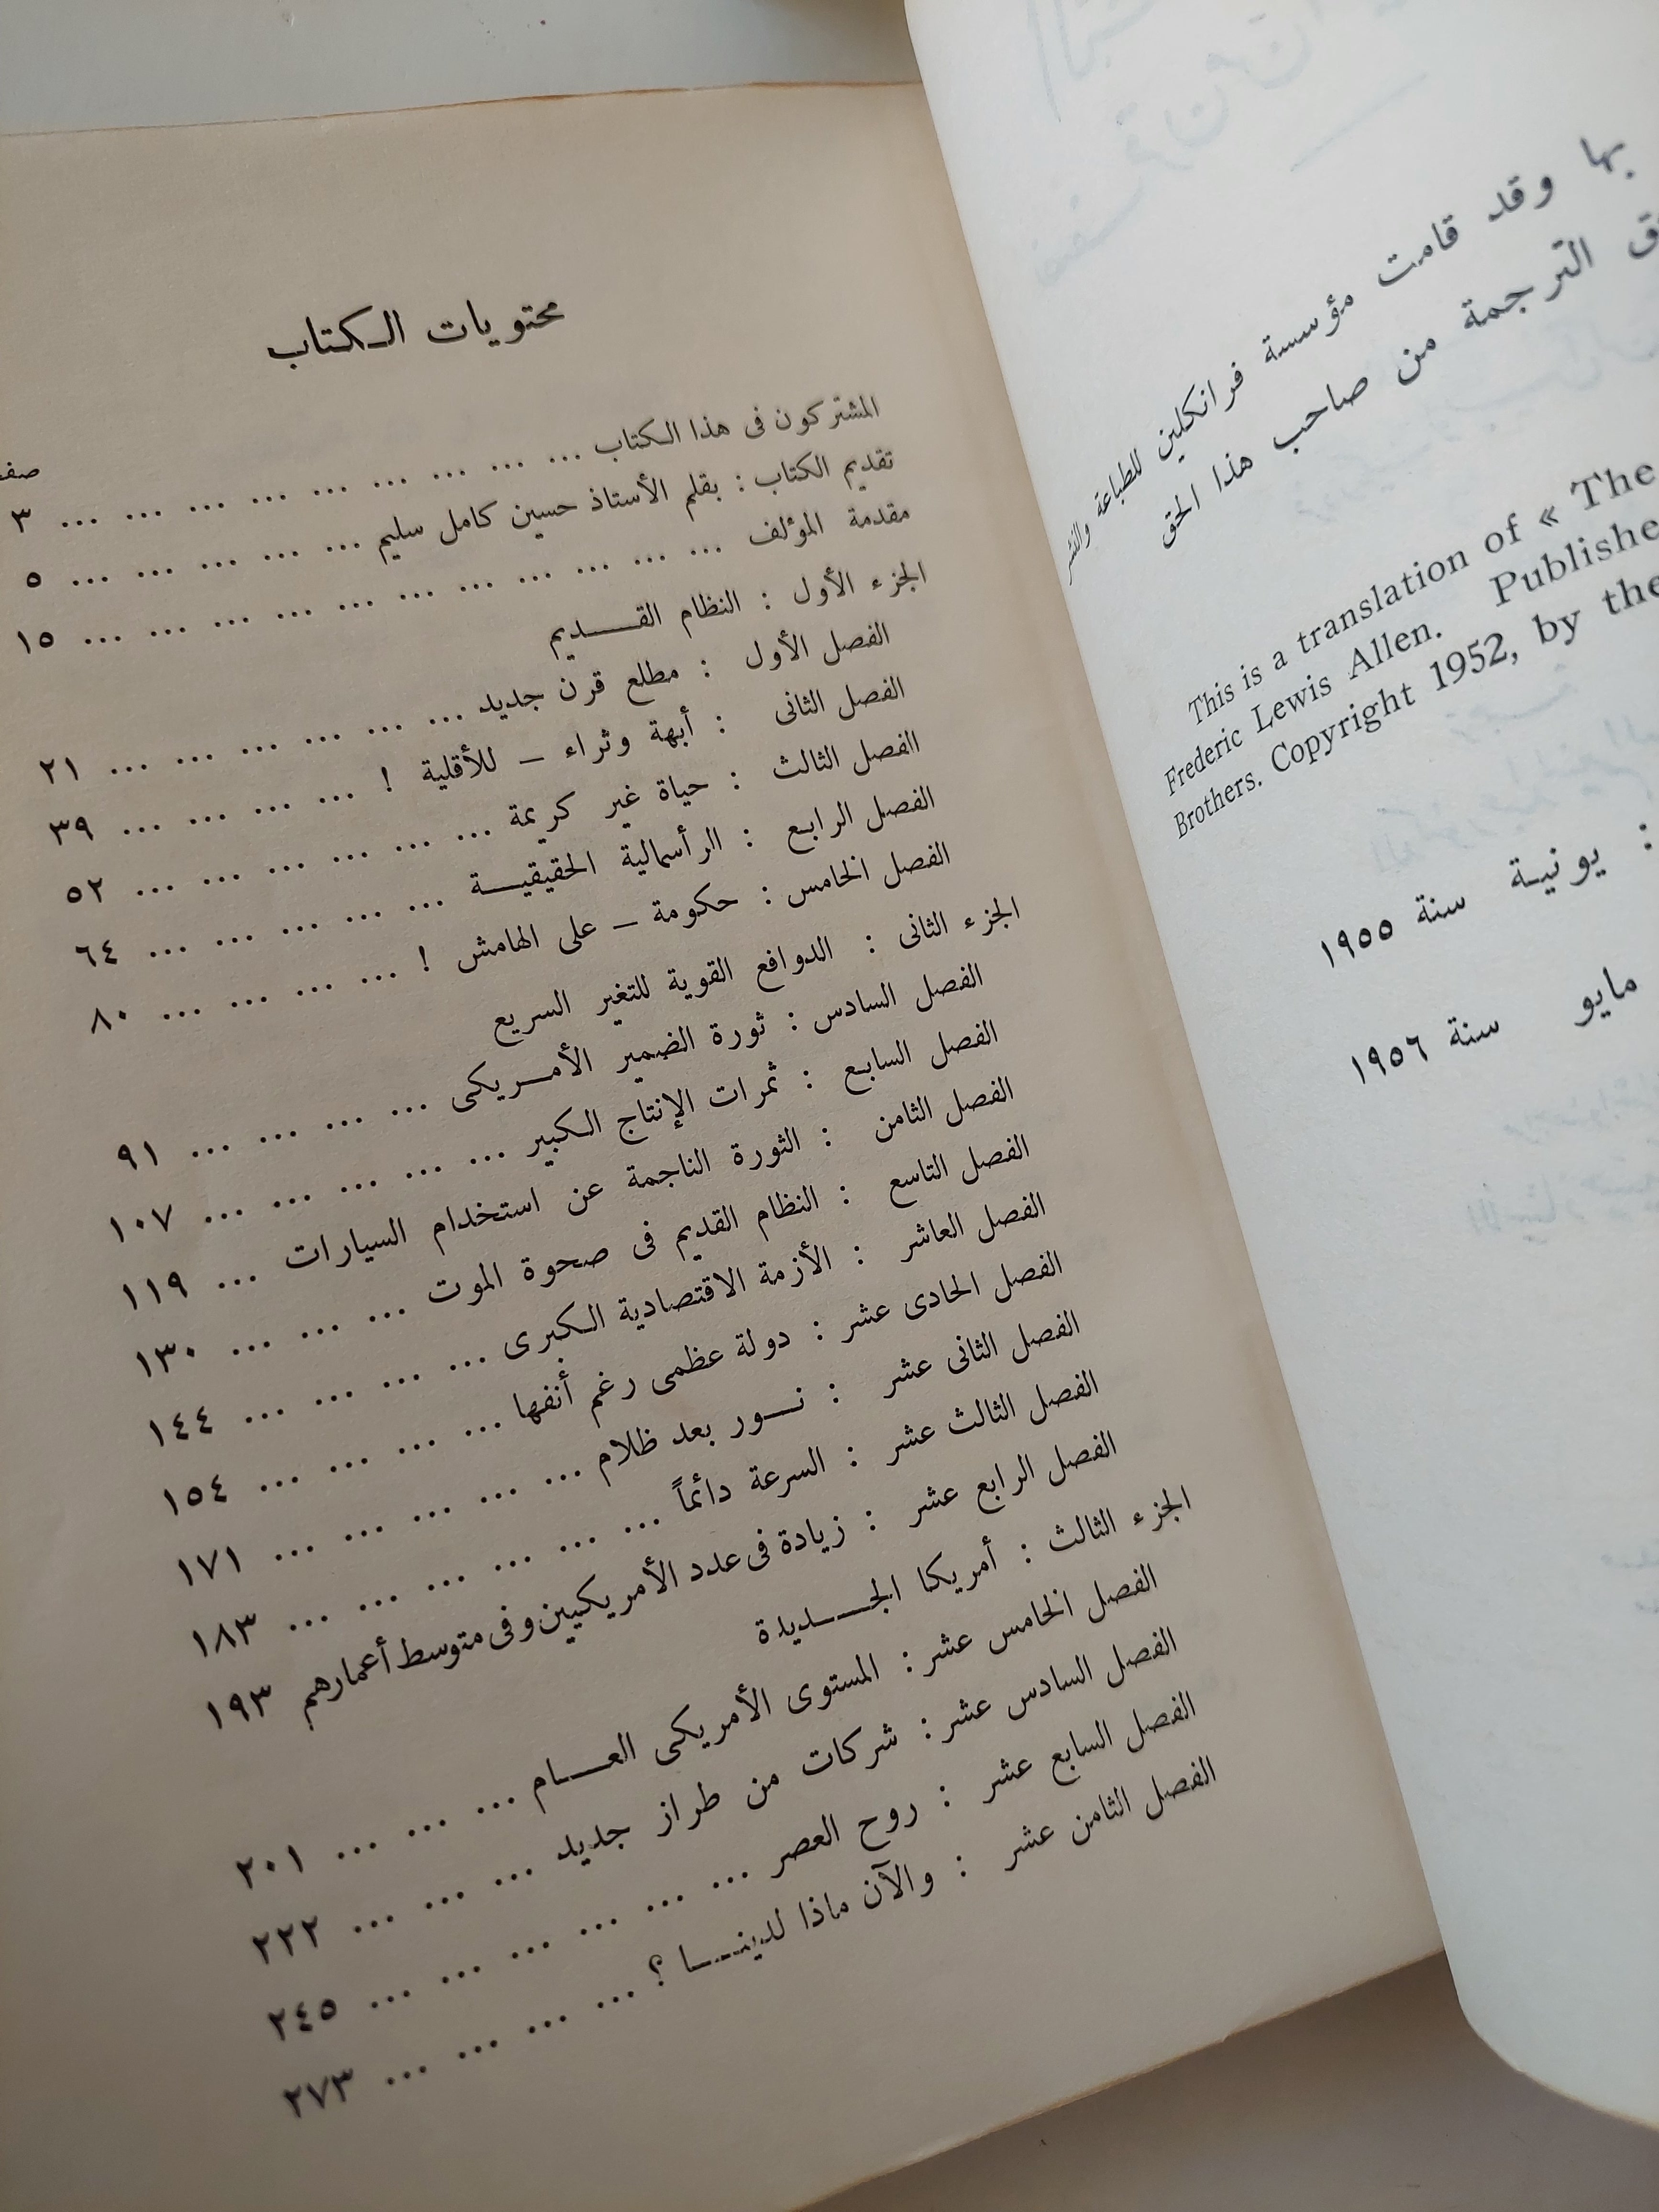 بها وقد قامت مؤسسة فرانكلين للطباعة والنشر
الترجمة من صاحب هذا الحق
This is a translation of « The
Frederic Lewis Allen. Publishe
Brothers. Copyright 1952, by the
: يونيـة سنة ١٩٥٥
مايو سنة ١٩٥٦
محتويات الـكتاب
صفـ
المشتركون فى هذا الـكتاب ... ... ... ... ... ... ... ... ... ٣
تقديم الكتاب : بقلم الأستاذ حسين كامل سليم ... ... ... ... ... ٥
مقدمة المؤلف ... ... ... ... ... ... ... ... ... ... ١٥
الجزء الأول : النظام القـــديم
الفصل الأول : مطلع قرن جديد ... ... ... ... ... ... ٢١
الفصل الثانى : أبهة وثراء – للأقلية ! ... ... ... ... ... ٣٩
الفصل الثالث : حياة غير كريمة ... ... ... ... ... ... ٥٢
الفصل الرابع : الرأسمالية الحقيقيـــة ... ... ... ... ... ٦٤
الفصل الخامس : حكومة – على الهامش ! ... ... ... ... ٨٠
الجزء الثانى : الدوافع القوية للتغير السريع
الفصل السادس : ثورة الضمير الأمـريكى ... ... ... ... ٩١
الفصل السابع : ثمرات الإنتاج الـكبير ... ... ... ... ... ١٠٧
الفصل الثامن : الثورة الناجمة عن استخدام السيارات ... ١١٩
الفصل التاسع : النظام القديم فى صحوة الموت ... ... ... ١٣٠
الفصل العاشر : الأزمة الاقتصادية الـكبرى ... ... ... ... ١٤٤
الفصل الحادى عشر : دولة عظمى رغم أنفها ... ... ... ... ١٥٤
الفصل الثانى عشر : نـــور بعد ظلام ... ... ... ... ... ١٧١
الفصل الثالث عشر : السرعة دائماً ... ... ... ... ... ... ١٨٣
الفصل الرابع عشر : زيادة فى عدد الأمريكيين وفى متوسط أعمارهم ١٩٣
الجزء الثالث : أمريكا الجـــديدة
الفصل الخامس عشر : المستوى الأمريكى العـــام ... ... ... ٢٠١
الفصل السادس عشر : شركات من طراز جديد ... ... ... ٢٢٢
الفصل السابع عشر : روح العصر ... ... ... ... ... ... ٢٤٥
الفصل الثامن عشر : والآن ماذا لدينـــا ؟ ... ... ... ... ٢٧٣